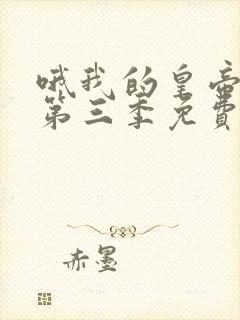 哦我的皇帝
第三季免费
赤墨